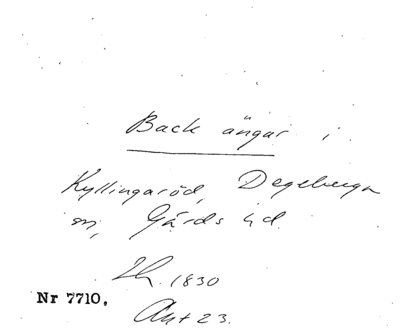 Back ängar i
Kyllingaröd, Degeberga
sn, Gärds hd.
Lh. 1830
Nr 7710.
Akt 23.